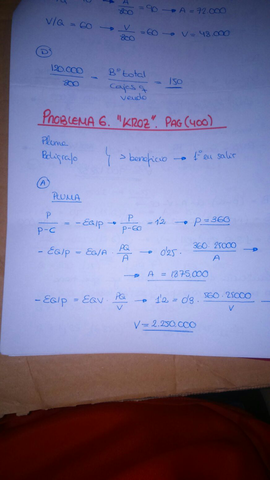 A/800 = 90 → A = 72.000
V/Q = 60 → V/800 = 60 → V = 48.000
D
120.000/800 - Bº total - 150
PROBLEMA 6. "KROZ". PAG (400)
Pluma
Bolígrafo } > beneficio → 1º en salir
A
PLUMA
P/P-C = -EQ/P → P/P-60 = 1'2 → P = 360
- EQ/P = EQ/A PQ/A → 0'25 · 360 25000/A →
→ A = 1875.000
- EQ/P = EQV PQ/V → 1'2 = 0'8 · 360 25000/V
V = 2.250.000